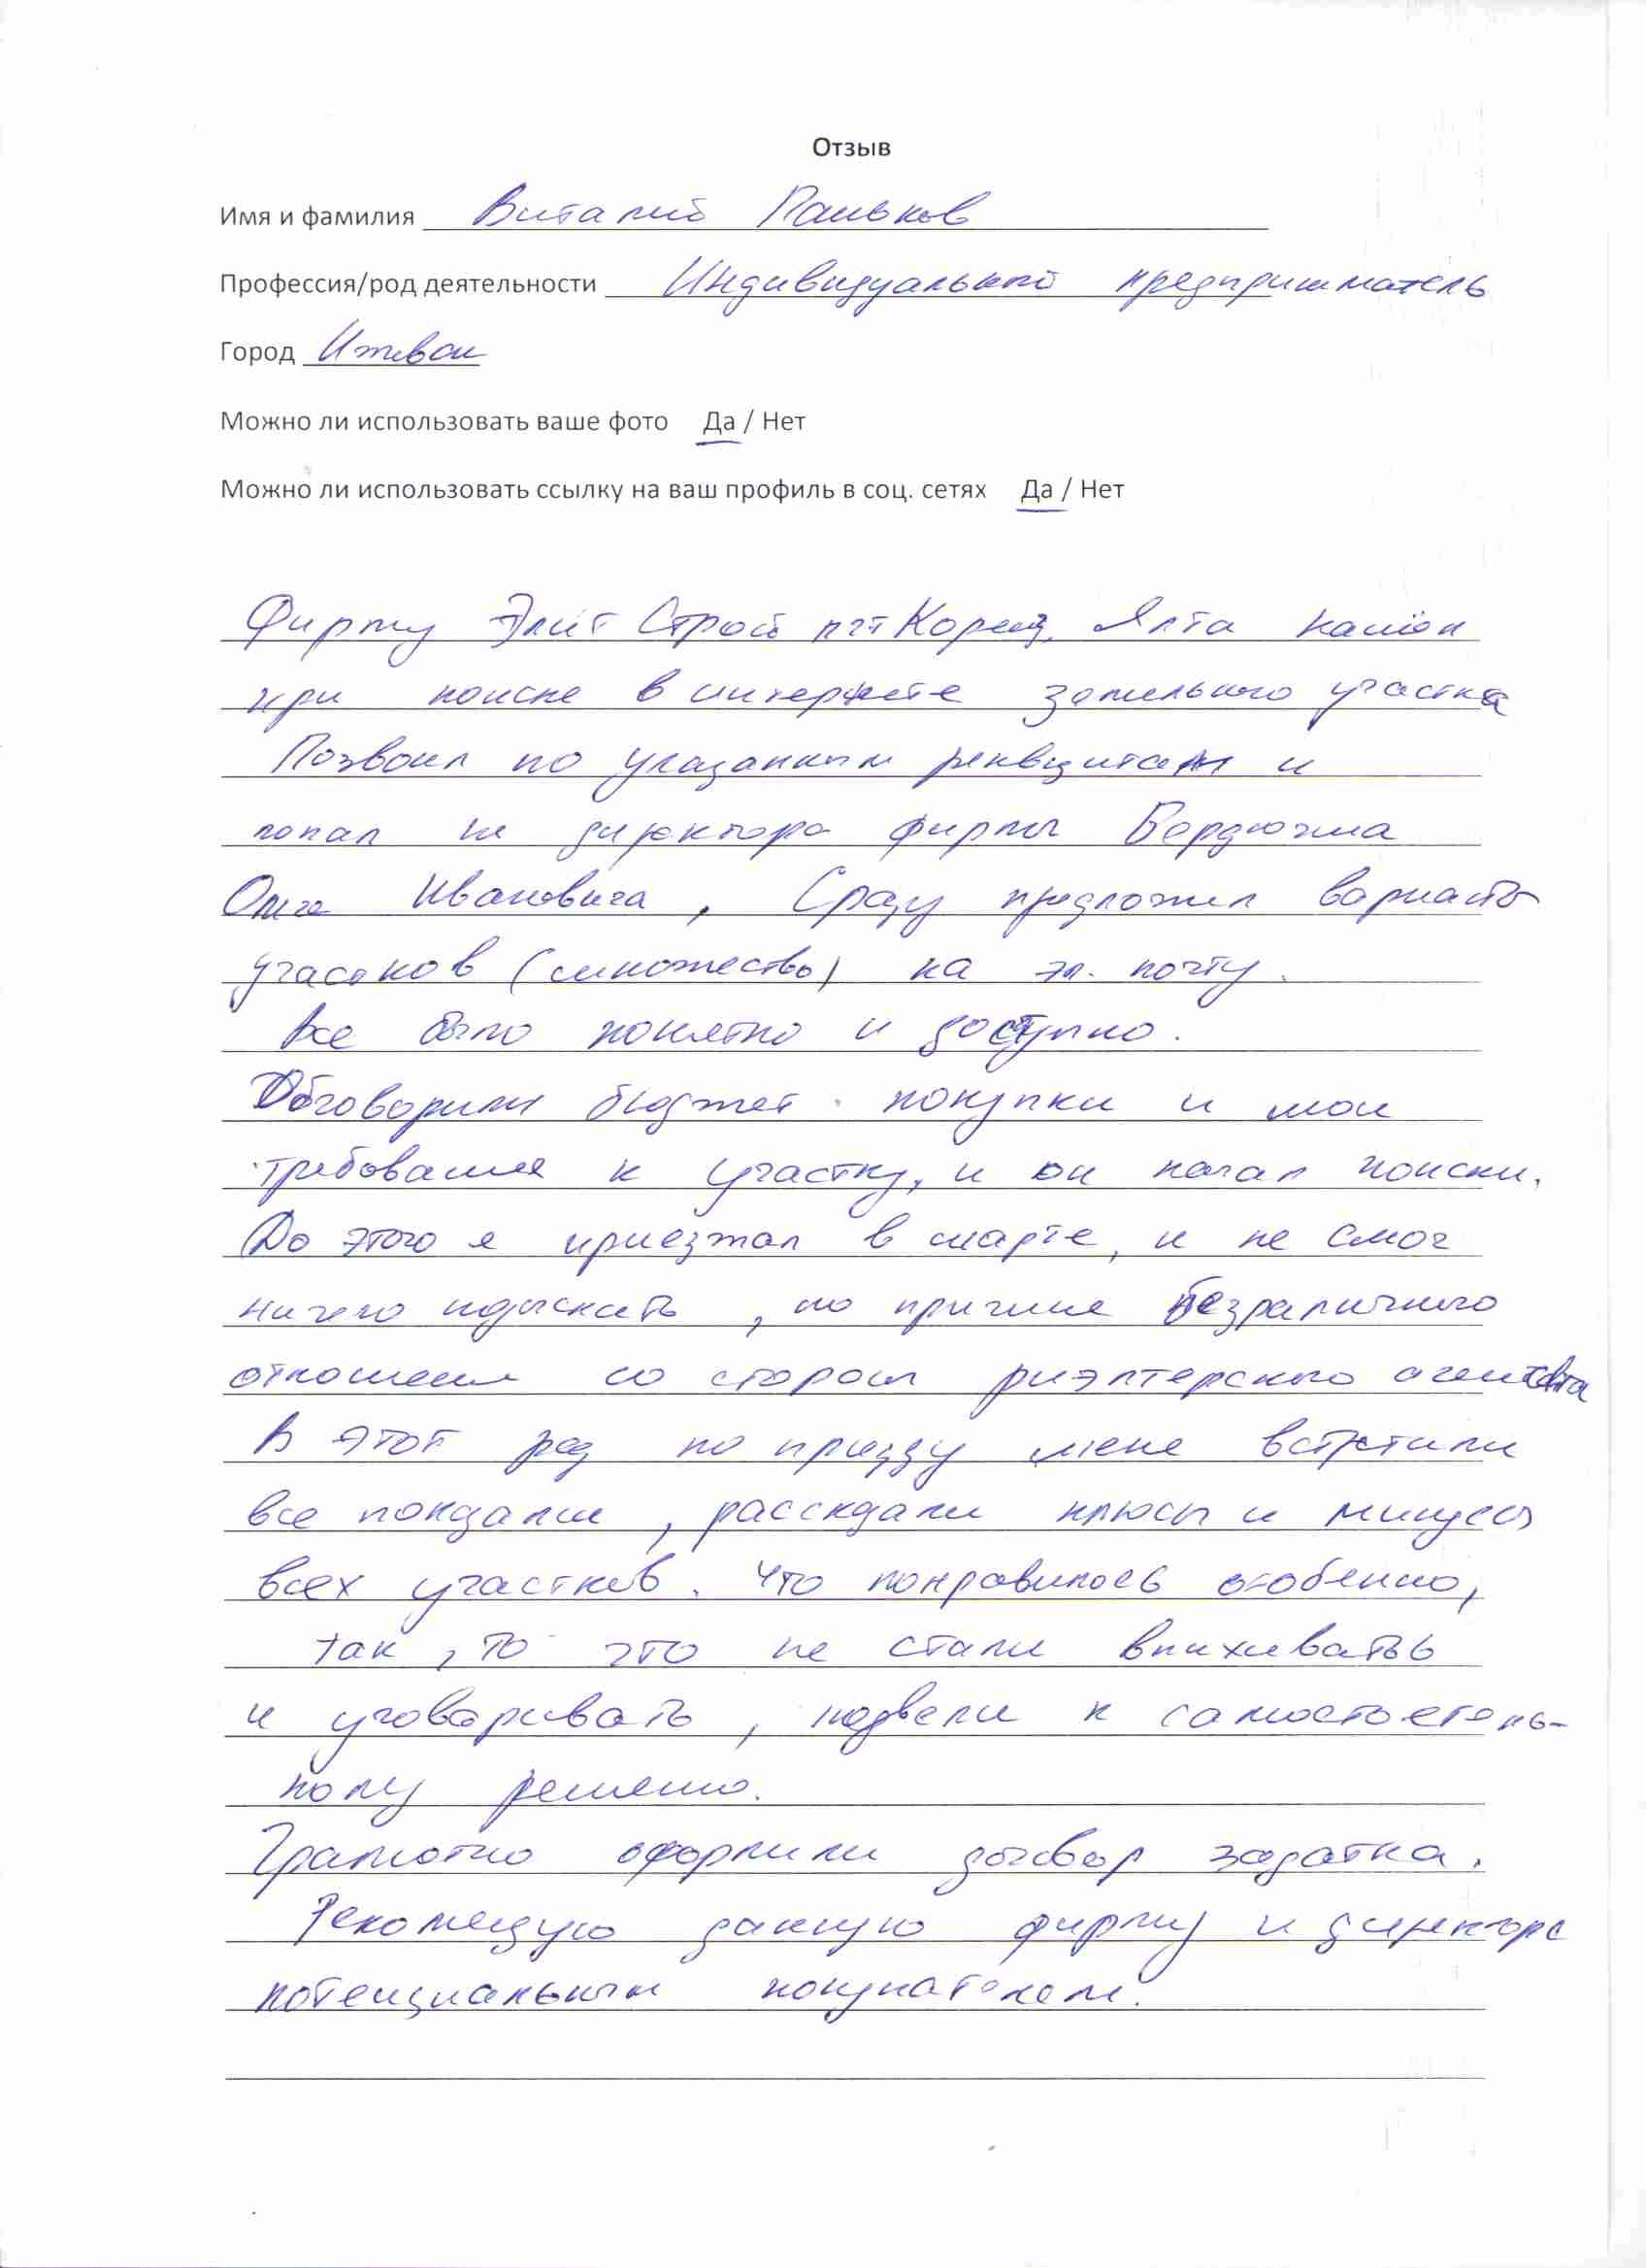 Отзыв
Имя и фамилия Виталий Паньков
Профессия/род деятельности Индивидуальный предприниматель
Город Ижевск
Можно ли использовать ваше фото Да / Нет
Можно ли использовать ссылку на ваш профиль в соц. сетях Да / Нет
Фирму Элит Строй пгт Кореиз, Ялта нашёл
при поиске в интернете земельного участка
Позвонил по указанным реквизитам и
попал на директора фирмы
Олега Ивановича, Сразу предложил варианты
участков (множество) на эл. почту.
Все было понятно и доступно.
Обговорили бюджет покупки и мои
требования к участку, и он начал поиски.
До этого я приезжал в марте, и не смог
ничего подыскать, по причине безразличного
отношения со стороны риэлтерского агентства
В этот раз по приезду меня встретили
все показали, рассказали плюсы и минусы
всех участков. Что понравилось особенно,
так, то это не стали впихивать
и уговаривать, подвели к самостоятель-
ному решению.
Грамотно оформили договор задатка.
Рекомендую данную фирму и директора
потенциальным покупателем.